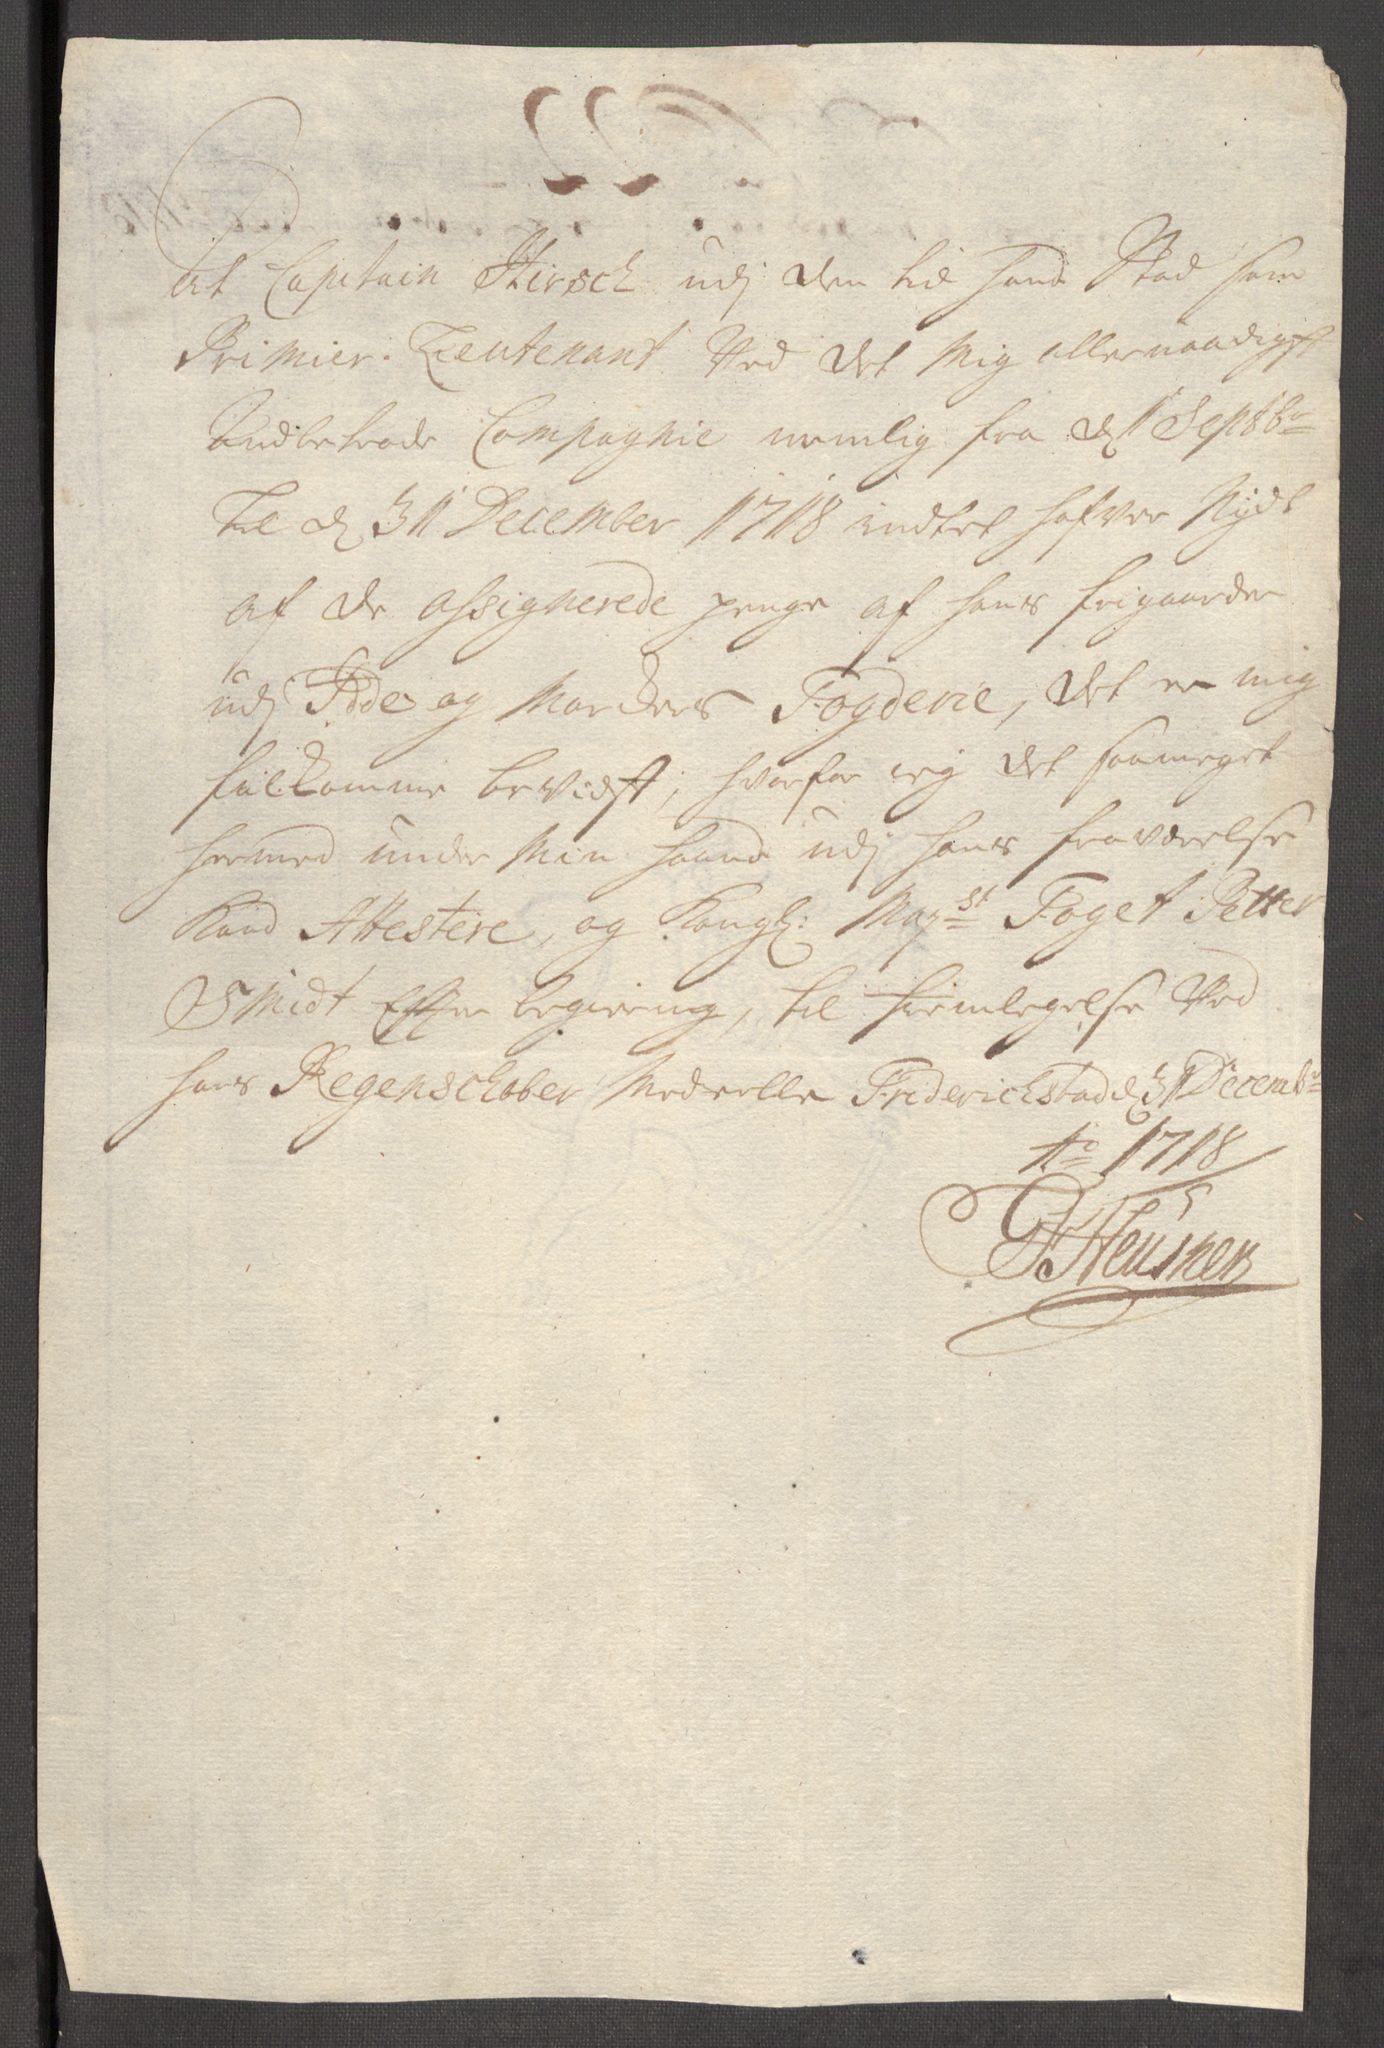 At Capitain Hirsch udj den tid hand Stod som
Primier Lieutenant Ved det Mig allernaadigst
Andbetrode Compagnie nemlig fra d 1 Septbr
til d 31 December 1718 indtet hafver Nydt
af de assignerede penge af hans frigaarder
udj Idde og Markers Fogderie, det er mig
fulkomme bevidst, hvorfor ieg det saameget
hermed under Min haand udj hans fraværelse
Kand Attestere, og Kongl: Mayst Foget Petter
Smidt Effter begiering, til fremleggelse Ved
hans Regenschober Meddelle Friderichstad d 31 Decembr
Ao 1718
Heusner